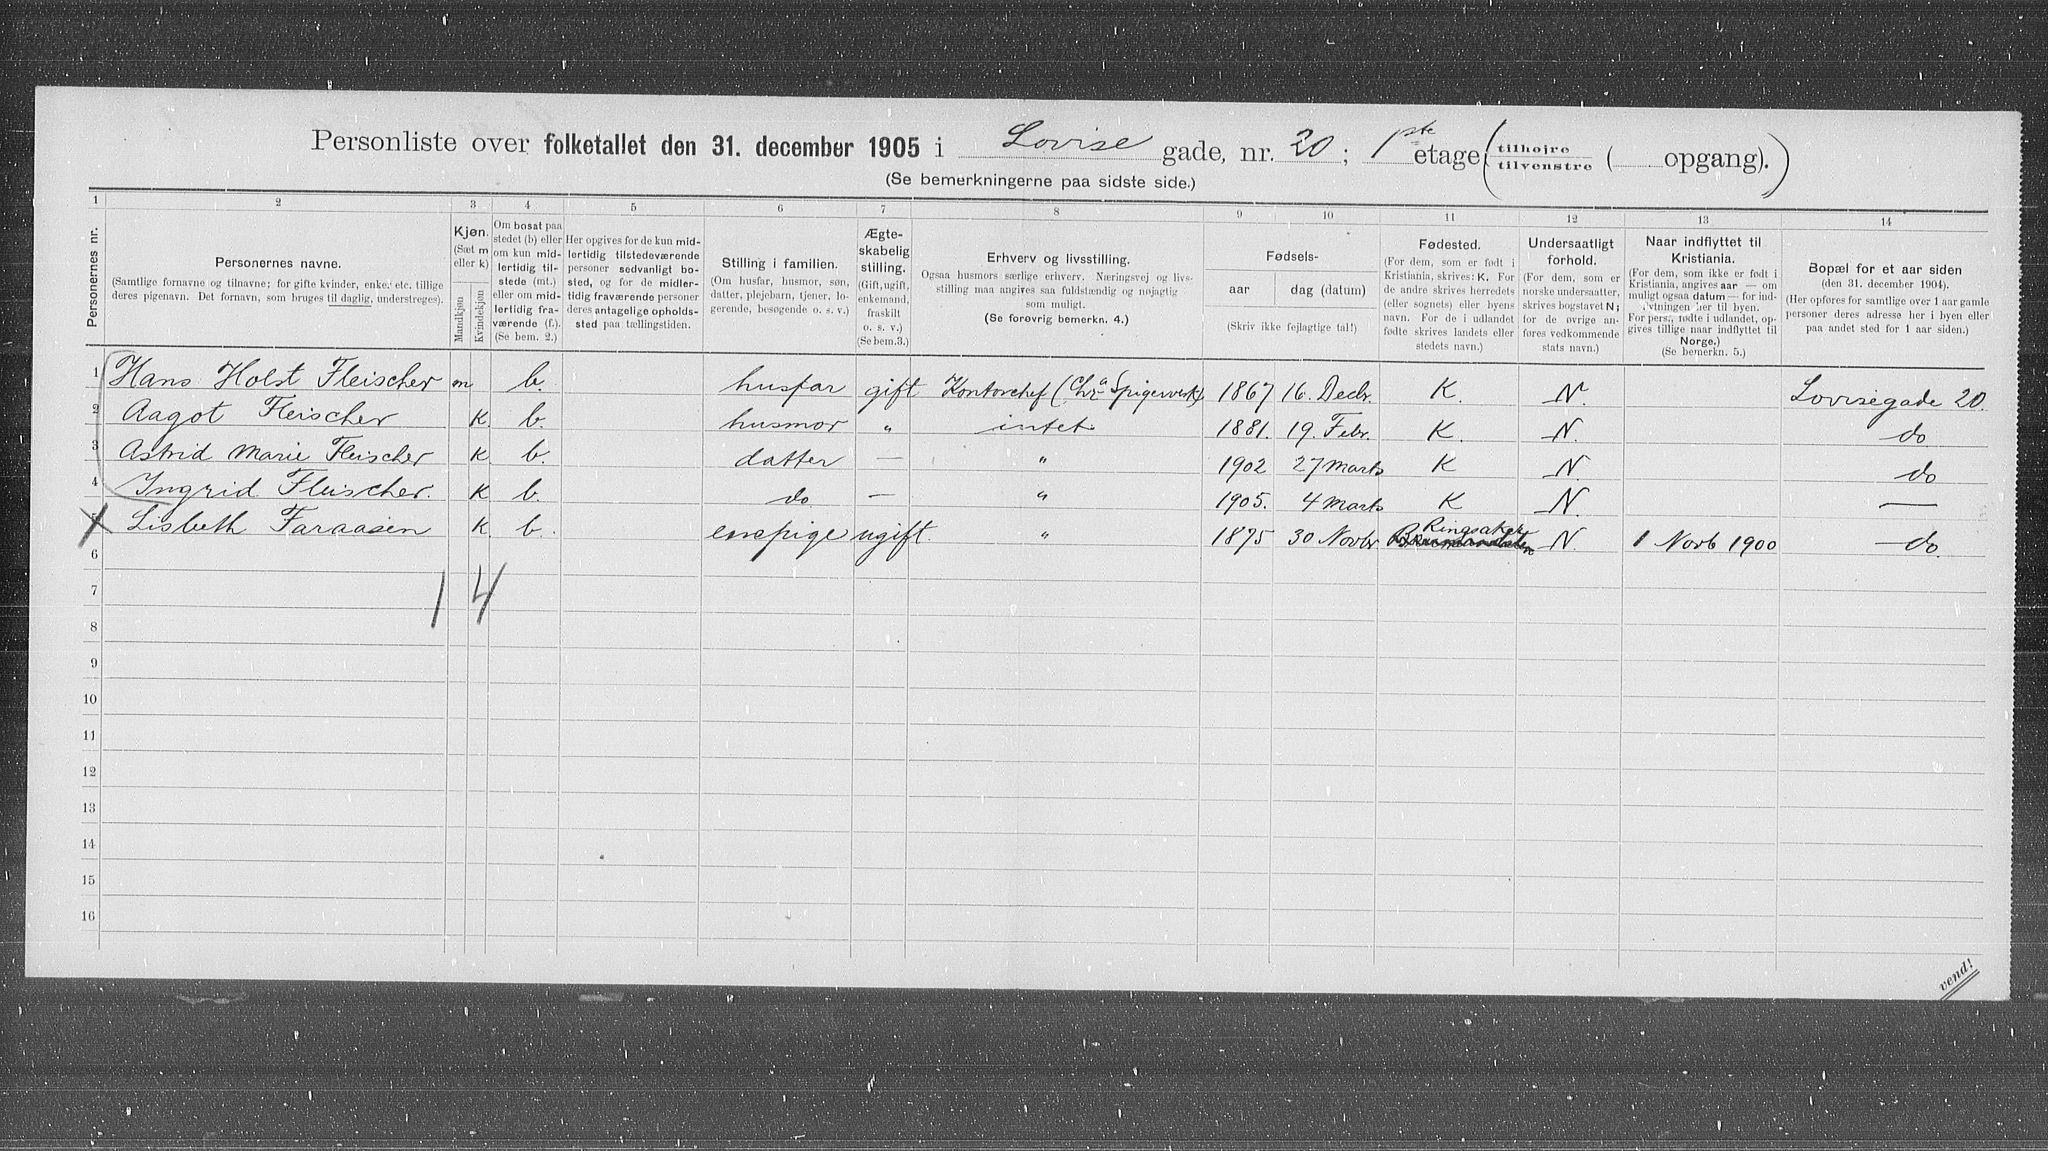 Personliste over folketallet den 31. december 1905 i Lovise gade, nr. 20; 1ste etage (tilhøjre tilvenstre ( opgang).)
(Se bemerkningerne paa sidste side.)
1 2 3 4 5 6 7 8 9 10 11 12 13 14
Personernes nr.
Personernes navne.
(Samtlige fornavne og tilnavne; for gifte kvinder, enker etc. tillige
deres pigenavn. Det fornavn, som bruges til daglig, understreges).
Kjøn.
(Sæt m
eller k)
Mandkjøn
Kvindekjøn
Om bosat paa
stedet (b) eller
om kun mid-
lertidig til-
stede (mt.)
eller om mid-
lertidig fra-
værende (f.).
(Se bem. 2.)
Her opgives for de kun mid-
lertidig tilstedeværende
personer sedvanligt bo-
sted, og for de midler-
tidig fraværende personer
deres antagelige opholds-
sted paa tællingstiden.
Stilling i familien.
(Om husfar, husmor, søn,
datter, plejebarn, tjener, lo-
gerende, besøgende o. s. v.)
Ægte-
skabelig
stilling.
(Gift, ugift,
enkemand,
fraskilt
o. s. v.)
(Se bem.3.)
Erhverv og livsstilling.
Ogsaa husmors særlige erhverv. Næringsvej og livs-
stilling maa angives saa fuldstændig og nøjagtig
som muligt.
(Se forøvrig bemerkn. 4.)
Fødsels-
aar dag (datum)
(Skriv ikke fejlagtige tal!)
Fødested.
(For dem, som er født i
Kristiania, skrives: K. For
de andre skrives herredets
(eller sognets) eller byens
navn. For de i udlandet
fødte skrives landets eller
stedets navn.)
Undersaatligt
forhold.
(For dem, som er
norske undersaatter,
skrives bogstavet N;
for de øvrige an-
føres vedkommende
stats navn.)
Naar indflyttet til
Kristiania.
(For dem, som ikke er født i
Kristiania, angives aar — om
muligt ogsaa datum — for ind-
flytningen her til byen.
For pers., fødte i udlandet, op-
gives tillige naar indflyttet til
Norge.)
(Se bemerkn. 5.)
Bopæl for et aar siden
(den 31. december 1904).
(Her opføres for samtlige over 1 aar gamle
personer deres adresse her i byen eller
paa andet sted for 1 aar siden.)
1 Hans Holst Fleischer m b. husfar gift Kontorchef (Chra Spigerverk) 1867 16. Decbr. K. N. Lovisegade 20.
2 Aagot Fleischer K. b. husmor " intet 1881. 19. Febr. K. N. do
3 Astrid Marie Fleischer K. b. datter — " 1902 27 Marts K N do
4 Ingrid Fleischer. K b. do — " 1905. 4 Marts K N. —
5 Lisbeth Faraasen K. b. enepige ugift. " 1875 30 Novbr Ringsaker N. 1 Novb 1900 — do.
6
7 1 4
8
9
10
11
12
13
14
15
16
vend!